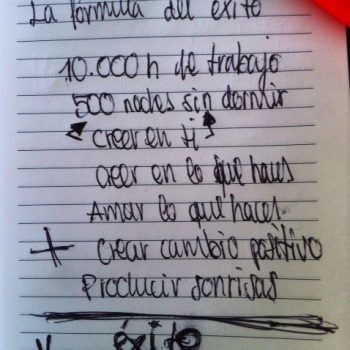 La fórmula del éxito
10.000 h de trabajo
500 noches sin dormir
creer en ti
creer en lo que haces
Amar lo que haces.
+ crear cambio positivo
Producir sonrisas
éxito